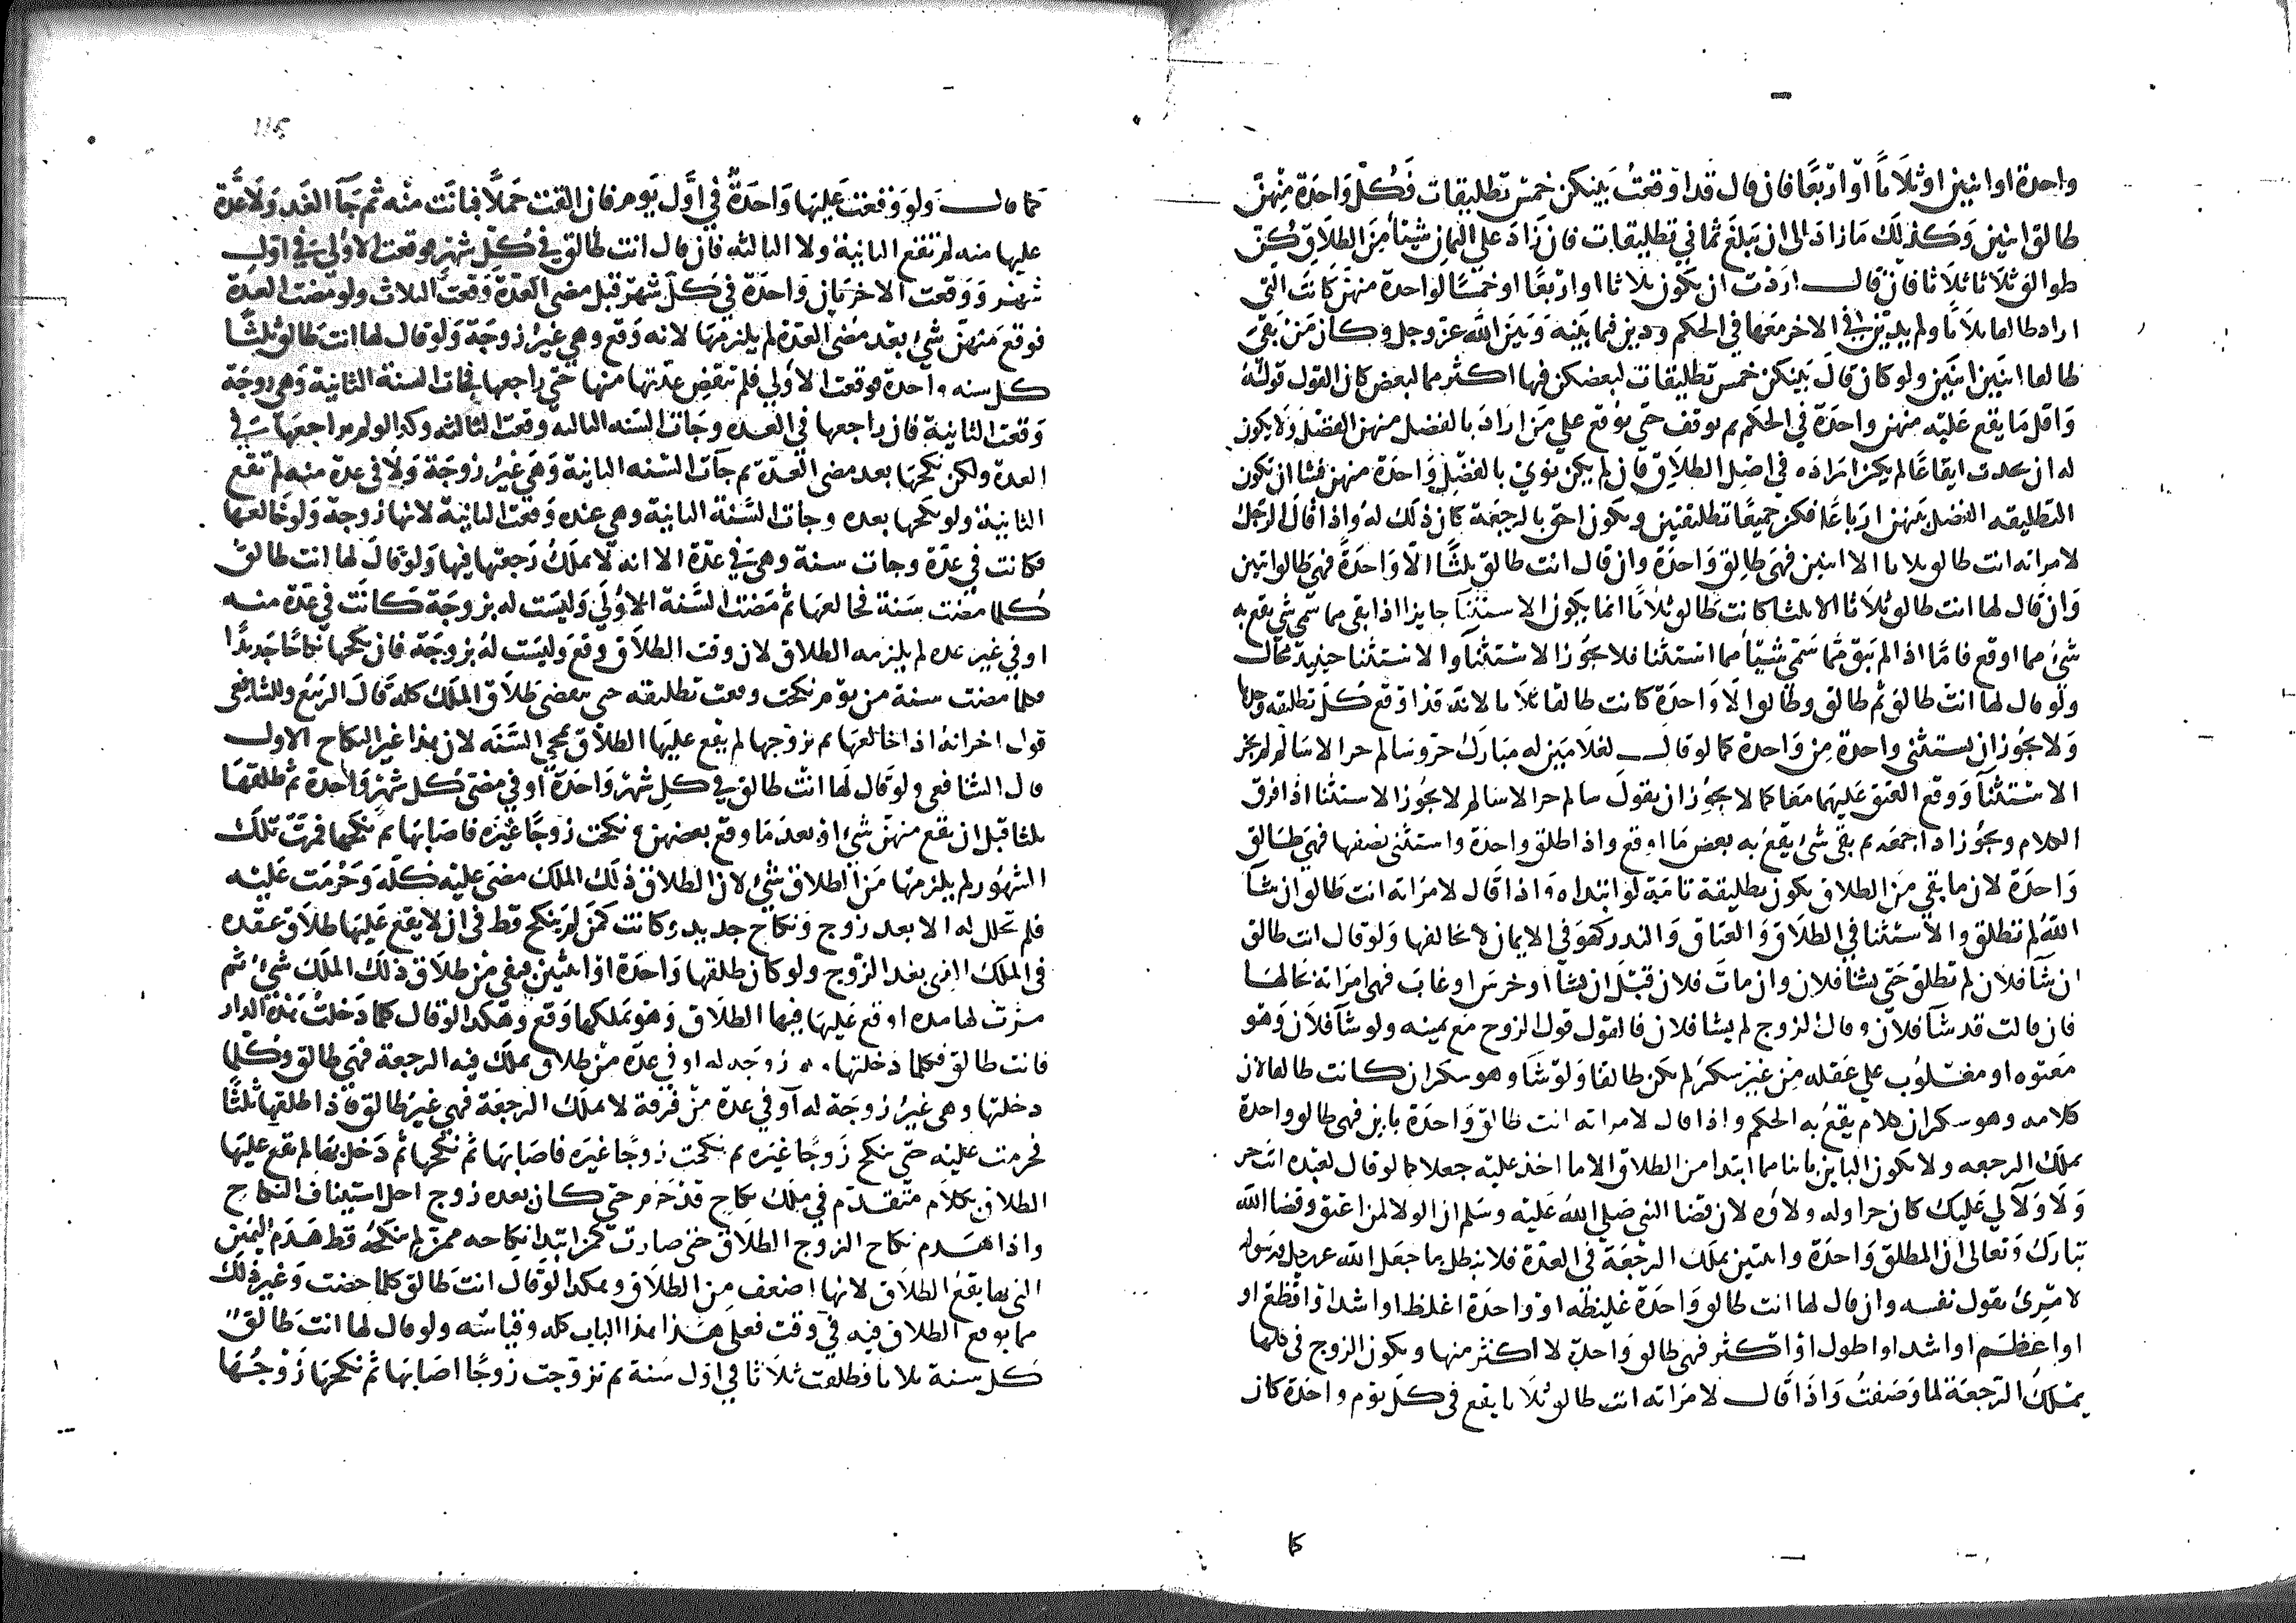 واحدة او اثنين او ثلاثا او اربعا فان قال قد اوقعت بينكن خمس تطليقات فكل واحدة منهن
طالق اثنين وكذلك ما زاد الى ان تبلغ ثماني تطليقات فان زاد على الثمان شيئا من الطلاق كن
طوالق ثلاثا ثلاثا فان قال اردت ان يكون ثلاثا او اربعا او خمسا لواحدة منهن كانت التي
اراد طالقا ثلاثا ولم يدين في الاخر معها في الحكم ودين فيما بينه وبين الله عز وجل وكان من بقي
طالقا اثنين اثنين ولو كان قال بينكن خمس تطليقات لبعضكن فيها اكثر مما لبعض كان القول قوله
واقل ما يقع عليه منهن واحدة في الحكم ثم يوقف حتى يوقع على من اراد بالفضل منهن الفضل ولا يكون
له ان يحدث ايقاعا لم يكن اراده في اصل الطلاق فان لم يكن نوى بالفضل واحدة منهن فشا ان تكون
التطليقه الفضل بينهن ارباعا فكن جميعا تطليقتين ويكون احق بالرجعة كان ذلك له واذا قال الرجل
لامراته انت طالق ثلاثا الا اثنين فهي طالق واحدة وان قال انت طالق ثلثا الا واحدة فهي طالق اثنين
وان قال لها انت طالق ثلاثا الا ثلثا كانت طالق ثلاثا انما يجوز الاستثنا جايزا اذا بقي مما سمى شي يقع به
شي مما اوقع فاما اذا لم يبق مما سمى شيئا مما استثنا فلا يجوز الاستثنا والاستثنا حينيذ محال
ولو قال لها انت طالق ثم طالق وطالق الا واحدة كانت طالقا ثلاثا لانه قد اوقع كل تطليقه وحدها
ولا يجوز ان يستثني واحدة من واحدة كما لو قال لغلامين له مبارك حر وسالم حر الا سالم لم يجز
الاستثنا ووقع العتق عليهما معا كما لا يجوز ان يقول سالم حر الا سالم لا يجوز الاستثنا اذا فرق
الكلام ويجوز اذا جمعه ثم بقي شي يقع به بعض ما اوقع واذا طلق واحدة واستثنى نصفها فهي طالق
واحدة لان ما بقي من الطلاق يكون تطليقة تامة لو ابتداه واذا قال لامراته انت طالق ان شا
الله لم تطلق والاستثنا في الطلاق والعتاق والنذر كهو في الايمان لا يخالفها ولو قال انت طالق
ان شا فلان لم تطلق حتى يشا فلان وان مات فلان قبل ان يشا او خرس او غاب فهي امراته بحالها
فان قالت قد شا فلان وقال الزوج لم يشا فلان فالقول قول الزوج مع يمينه ولو شا فلان وهو
معتوه او مغلوب على عقله من غير سكر لم تكن طالقا ولو شا وهو سكران كانت طالقا لان
كلامه وهو سكران كلام يقع به الحكم واذا قال لامراته انت طالق واحدة باين فهي طالق واحدة
يملك الرجعه ولا يكون الباين باينا مما ابتدا من الطلاق الا ما اخذ عليه جعلا كما لو قال لعبده انت حر
ولا ولا لي عليك كان حرا وله ولاؤه لان قضا النبي صلى الله عليه وسلم ان الولا لمن اعتق وقضا الله
تبارك وتعالى ان المطلق واحدة واثنتين يملك الرجعة في العدة فلا يبطل ما جعل الله عز وجل ورسوله
لامرئ بقول نفسه وان قال لها انت طالق واحدة غليظه او واحدة اغلظ او اشد او افظع او
او اعظم او اشد او اطول او اكثر فهي طالق واحدة لا اكثر منها ويكون الزوج في كلها
يملك الرجعة لما وصفت واذا قال لامراته انت طالق ثلاثا يقع في كل يوم واحدة كان
كا
115
كما قال ولو وقعت عليها واحدة في اول يوم فان القت حملا فبانت منه ثم جا الغد ولا عدة
عليها منه لم تقع الثانية ولا الثالثه فان قال انت طالق في كل شهر فوقعت الاولى في اول
شهر ووقعت الاخريان واحدة في كل شهر قبل مضي العدة وقعت الثلاث ولو مضت العدة
فوقع منهن شي بعد مضي العدة لم يلزمها لانه وقع وهي غير زوجة ولو قال لها انت طالق ثلثا
كل سنه واحدة فوقعت الاولى فلم تنقض عدتها منها حتى راجعها فجات السنة الثانية وهي زوجة
وقعت الثانية فان راجعها في العده وجات السنه الثالثه وقعت الثالثه وكذا لو لم يراجعها في
العدة ولكن نكحها بعد مضي العدة ثم جات السنه الثانية وهي غير زوجة ولا في عدة منه لم تقع
الثانية ولو نكحها بعده وجات السنة الثانية وهي عنده وقعت الثانية لانها زوجة ولو خالعها
فكانت في عدة وجات سنة وهي في عدة الا انه لا يملك رجعتها فيها ولو قال لها انت طالق
كلما مضت سنة فخالعها ثم مضت السنة الاولى وليست له بزوجة كانت في عدة منه
او في غير عده لم يلزمه الطلاق لان وقت الطلاق وقع وليست له بزوجة فان نكحها نكاحا جديدا
فكلما مضت سنة من يوم نكحت وقعت تطليقه حتى ينقضى طلاق الملك كله قال الربيع وللشافعي
قول اخر انه اذا خالعها ثم تزوجها لم يقع عليها الطلاق بمجي السنه لان هذا غير النكاح الاول
قال الشافعي ولو قال لها انت طالق في كل شهر واحدة او في مضي كل شهر واحدة ثم طلقها
ثلثا قبل ان يقع منهن شي او بعد ما وقع بعضهن ونكحت زوجا غيره فاصابها ثم نكحها فمرت تلك
الشهور لم يلزمها من الطلاق شي لان الطلاق ذلك الملك مضى عليه كله وحرمت عليه
فلم تحلل له الا بعد زوج ونكاح جديد وكانت كمن لم ينكح قط في ان لا يقع عليها طلاق عقده
في الملك الذي بعد الزوج ولو كان طلقها واحدة او اثنتين فبقي من طلاق ذلك الملك شي ثم
مرت لها مده اوقع عليها فيها الطلاق وهو يملكها وقع وهكذا لو قال كلما دخلت هذه الدار
فانت طالق فكلما دخلتها وهي زوجة له او في عدة من طلاق يملك فيه الرجعة فهي طالق وكلما
دخلتها وهي غير زوجة له او في عدة من فرقة لا يملك الرجعة فهي غير طالق فاذا طلقها ثلثا
فحرمت عليه حتى ينكح زوجا غيره ثم نكحت زوجا غيره فاصابها ثم نكحها ثم دخل بها لم يقع عليها
الطلاق بكلام متقدم في ملك نكاح قد حرم حتى كان بعده زوج احل استيناف النكاح
واذا هدم نكاح الزوج الطلاق حتى صارت كمن ابتدا نكاحه ممن لم ينكحه قط هدم اليمين
التي بها يقع الطلاق لانها اضعف من الطلاق وهكذا لو قال انت طالق كلما حضت وغير ذلك
مما يوقع الطلاق فيه في وقت فعلى هذا هذا الباب كله وقياسه ولو قال لها انت طالق
كل سنة ثلاثا فطلقت ثلاثا في اول سنة ثم تزوجت زوجا اصابها ثم نكحها زوجها